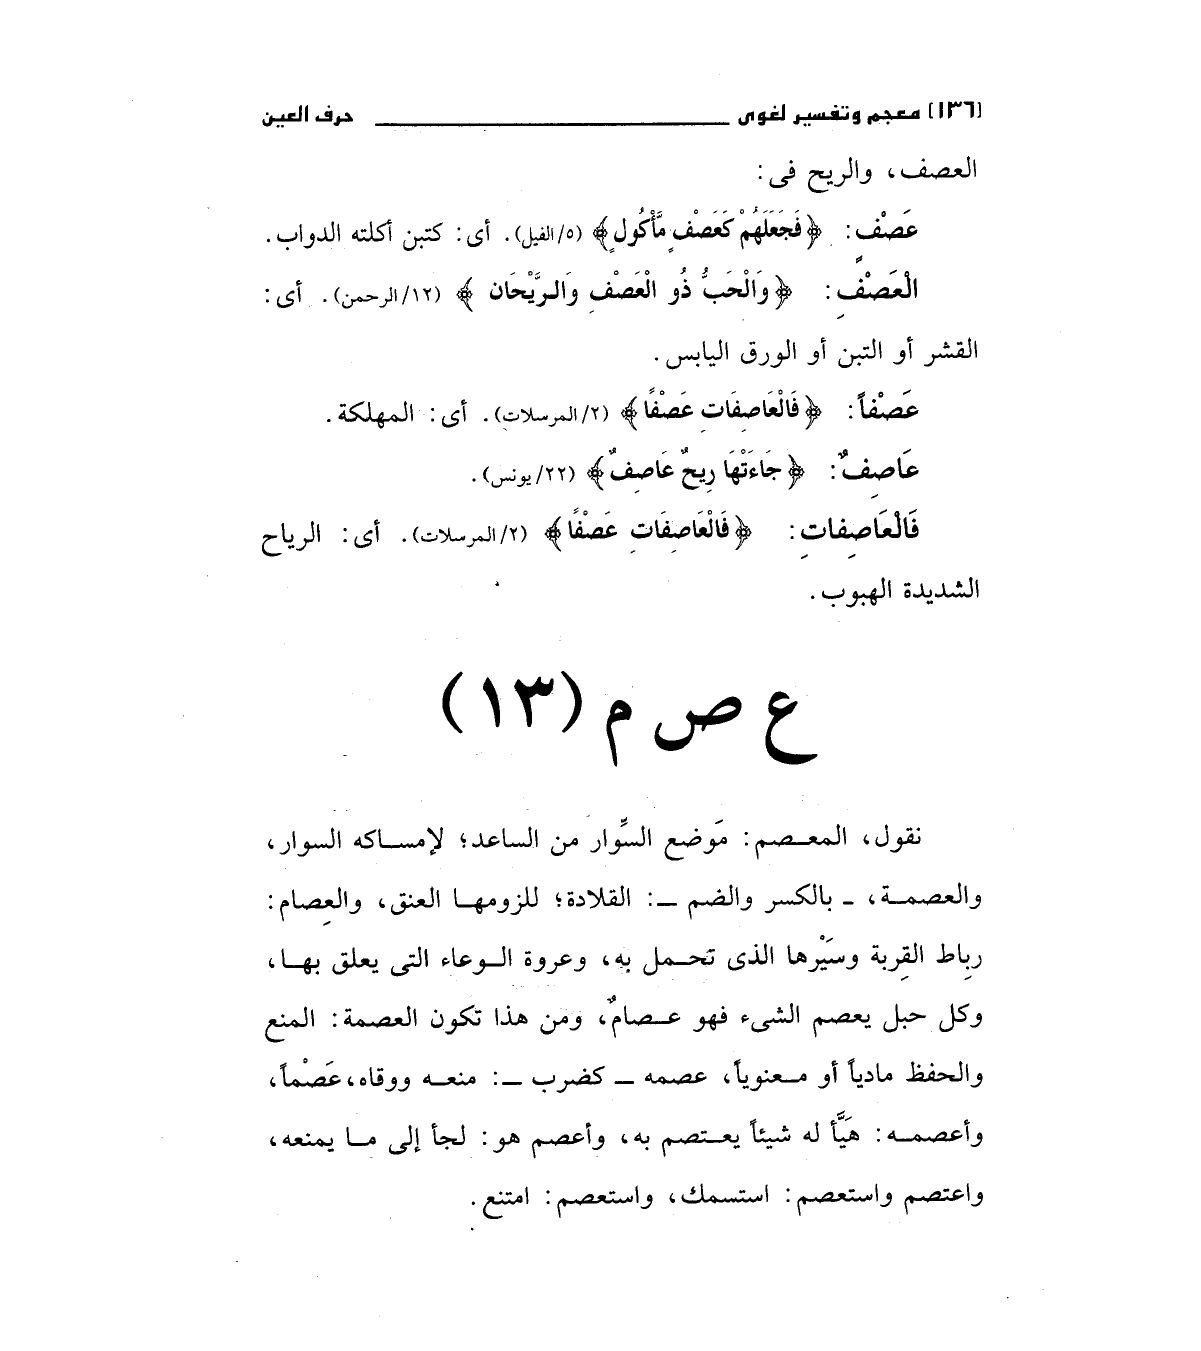 [١٣٦] معجم وتفسير لغوى ــــــــ حرف العين
العصف، والريح فى:
عَصْفٍ: ﴿فَجَعَلَهُمْ كَعَصْفٍ مَّأْكُولٍ﴾ (٥/الفيل). أى: كتبن أكلته الدواب.
الْعَصْفِ: ﴿وَالْحَبُّ ذُو الْعَصْفِ وَالرَّيْحَان﴾ (١٢/الرحمن). أى:
القشر أو التبن أو الورق اليابس.
عَصْفاً: ﴿فَالْعَاصِفَاتِ عَصْفًا﴾ (٢/المرسلات). أى: المهلكة.
عَاصِفٌ: ﴿جَاءَتْهَا رِيحٌ عَاصِفٌ﴾ (٢٢/يونس).
فَالْعَاصِفاتِ: ﴿فَالْعَاصِفَاتِ عَصْفًا﴾ (٢/المرسلات). أى: الرياح
الشديدة الهبوب.
ع ص م (١٣)
نقول، المعصم: مَوضع السِّوار من الساعد؛ لإمساكه السوار،
والعصمة، ـ بالكسر والضم ـ: القلادة؛ للزومها العنق، والعِصام:
رباط القِربة وسَيْرها الذى تحمل به، وعروة الوعاء التى يعلق بها،
وكل حبل يعصم الشىء فهو عصامٌ، ومن هذا تكون العصمة: المنع
والحفظ مادياً أو معنوياً، عصمه ـ كضرب ـ: منعه ووقاه، عَصْماً،
وأعصمه: هَيَّأ له شيئاً يعتصم به، وأعصم هو: لجأ إلى ما يمنعه،
واعتصم واستعصم: استسمك، واستعصم: امتنع.